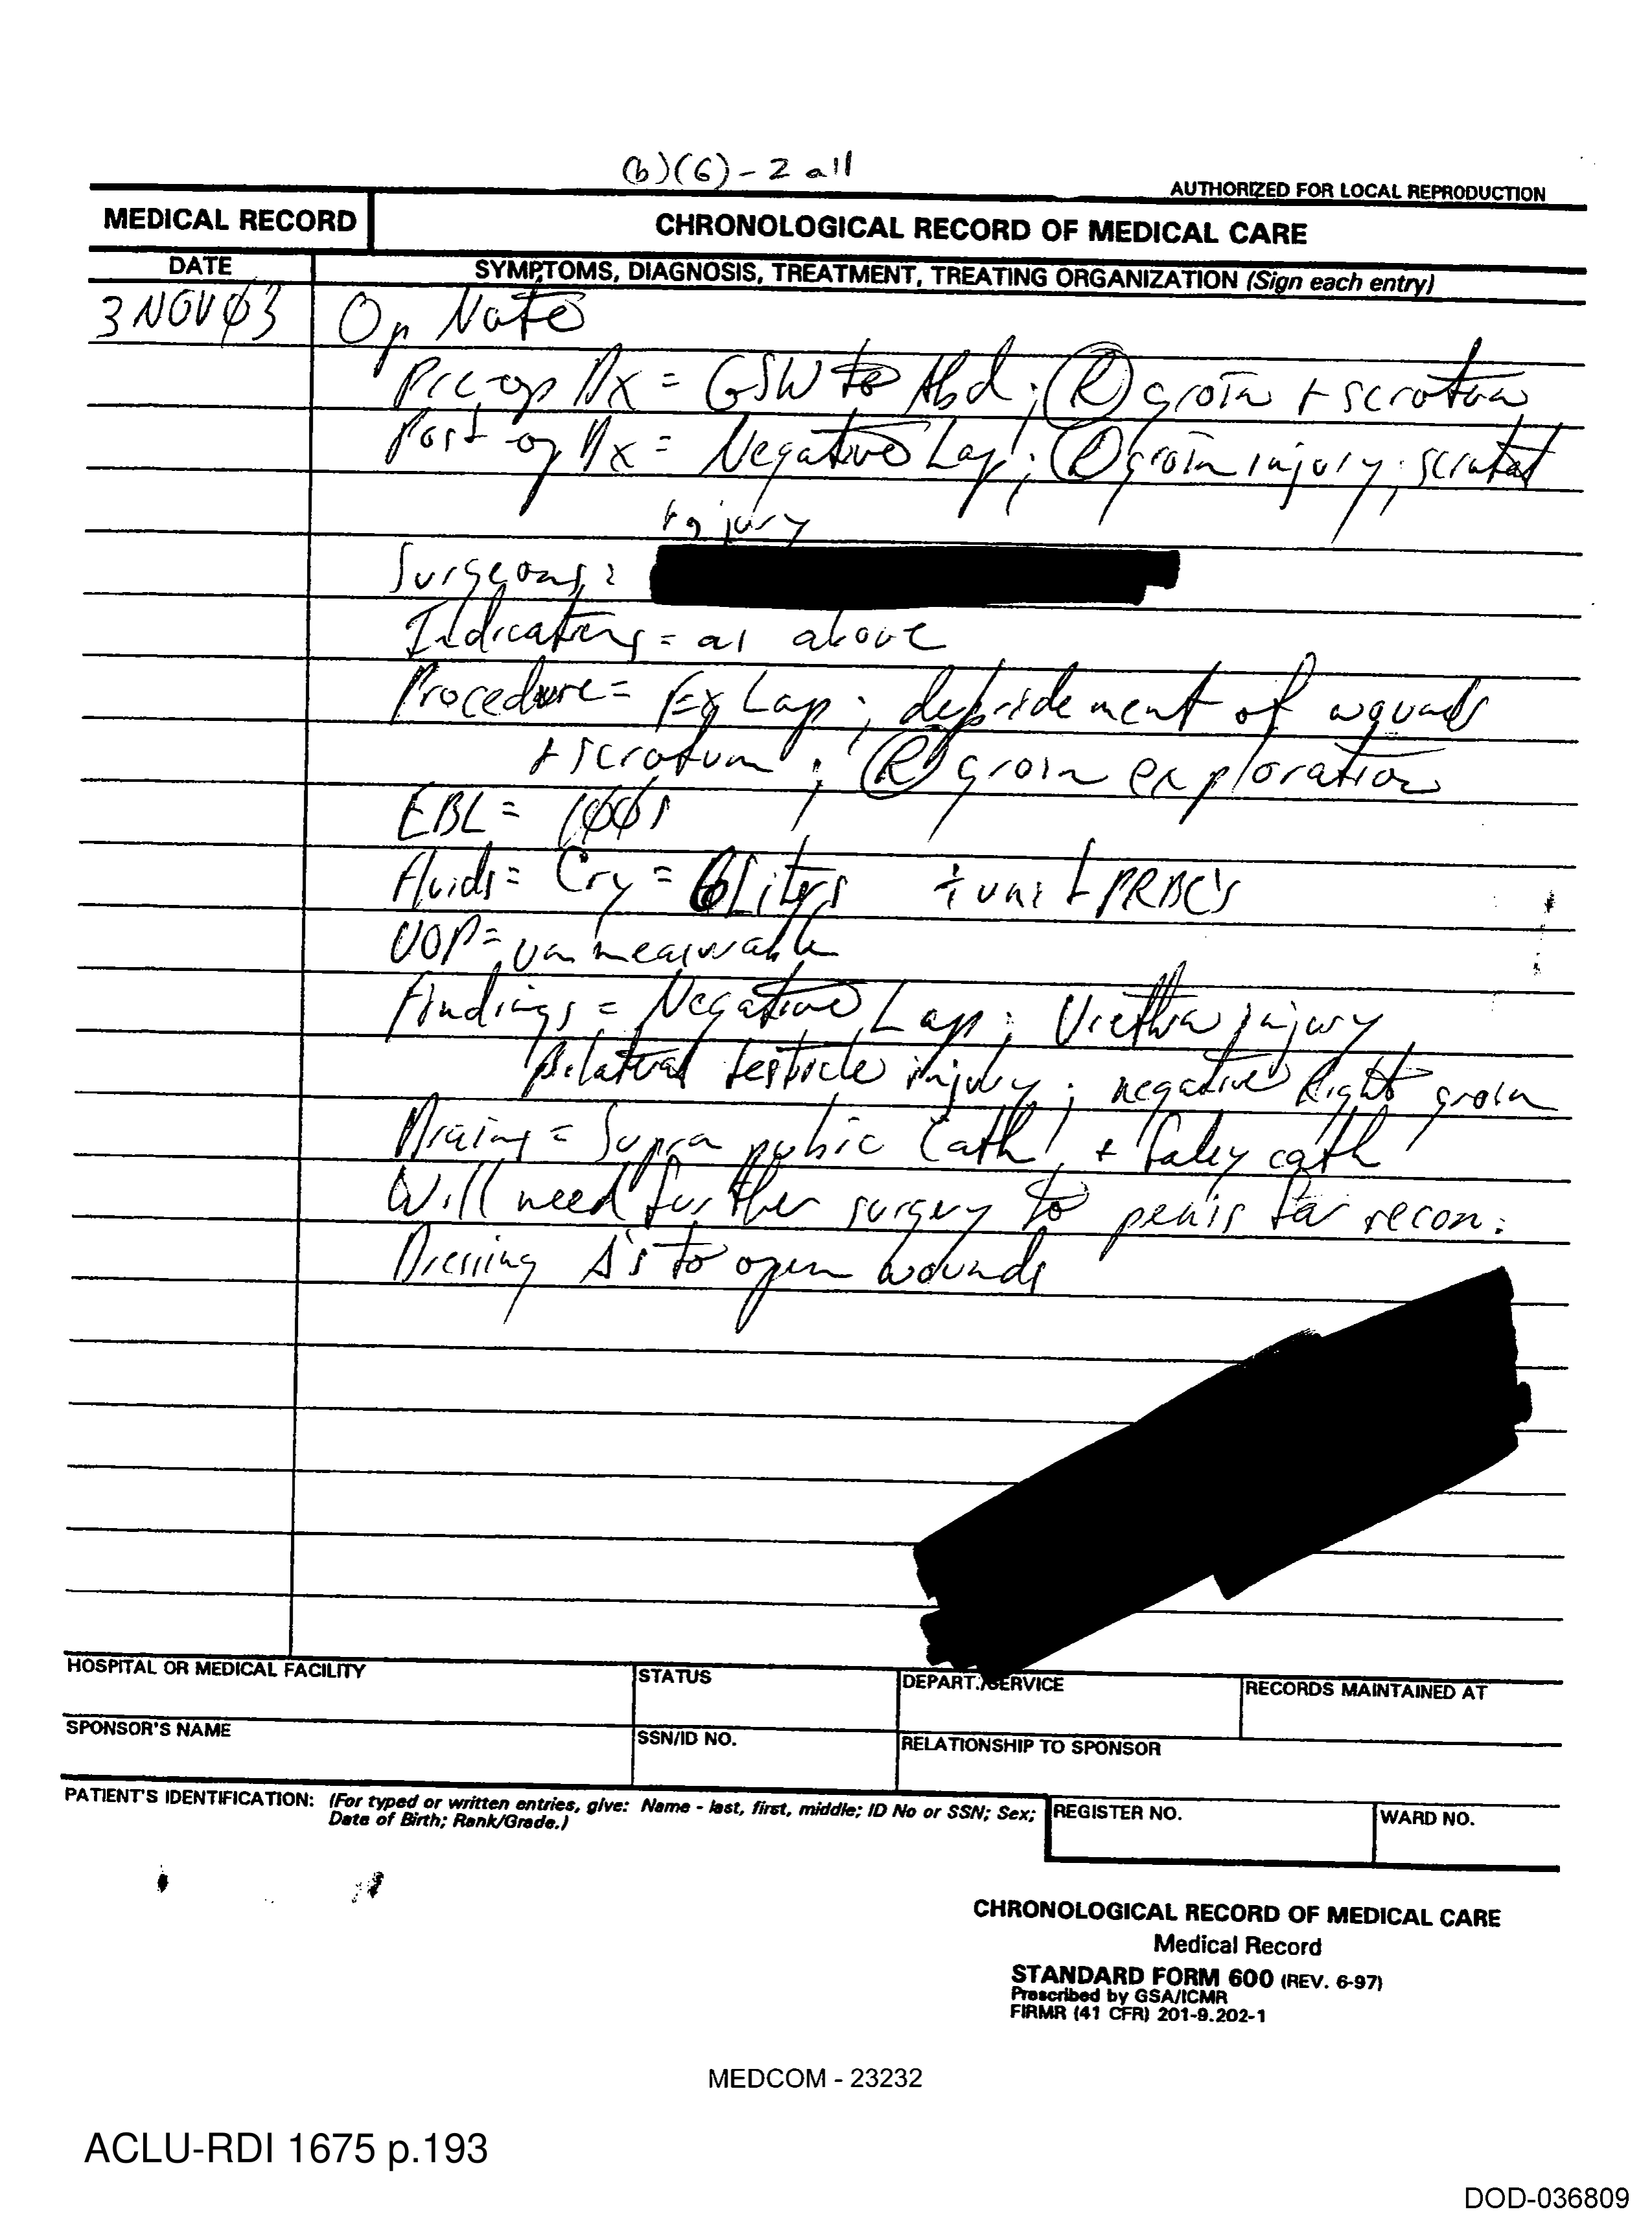 (b)(6)-2 all
AUTHORIZED FOR LOCAL REPRODUCTION
MEDICAL RECORD
CHRONOLOGICAL RECORD OF MEDICAL CARE
DATE
SYMPTOMS, DIAGNOSIS, TREATMENT, TREATING ORGANIZATION (Sign each entry)
3 NOV 03 Op Note
Pre-op Dx = GSW to Abd; (R) groin + scrotum
Post-op Dx = Negative Lap; (R) groin injury; scrotal
injury
Surgeons:
Indications = as above
Procedure = Ex Lap; debridement of wounds
+ scrotum; (R) groin exploration
EBL = 100's
Fluids = Cry = 6 Liters unit PRBC's
UOP = unmeasurable
Findings = Negative Lap; Urethra injury
Bilateral testicle injury; negative Right groin
Drains = Supra pubic Cath + foley cath
Will need further surgery to penis for recon.
Dressing Δ's to open wounds
HOSPITAL OR MEDICAL FACILITY
STATUS
DEPART./SERVICE
RECORDS MAINTAINED AT
SPONSOR'S NAME
SSN/ID NO.
RELATIONSHIP TO SPONSOR
PATIENT'S IDENTIFICATION: (For typed or written entries, give: Name - last, first, middle; ID No or SSN; Sex;
Date of Birth; Rank/Grade.)
REGISTER NO.
WARD NO.
CHRONOLOGICAL RECORD OF MEDICAL CARE
Medical Record
STANDARD FORM 600 (REV. 6-97)
Prescribed by GSA/ICMR
FIRMR (41 CFR) 201-9.202-1
MEDCOM - 23232
ACLU-RDI 1675 p.193
DOD-036809